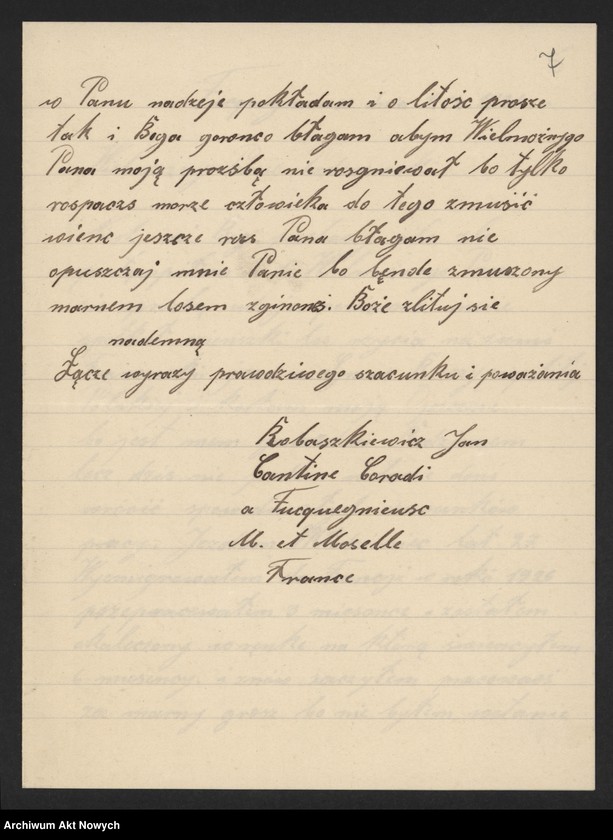 7
w Panu nadzeje pokładam i o litośc prosze
tak i Boga goronco błagam abym Wielmożnygo
Pana moją proźbą nie rosgniewał bo tylko
rospacs morze człowieka do tego zmusić
wienc jeszcze ras Pana błagam nie
opuszczaj mnie Panie bo bęnde zmuszony
marnem losem zginonsi. Boże zlituj sie
nademną
Łącze wyrazy prawdziwego szacunku i poważania
Robaszkiewicz Jan
Cantine Coradi
a Tucquegnieusc
M. et Moselle
France
Archiwum Akt Nowych